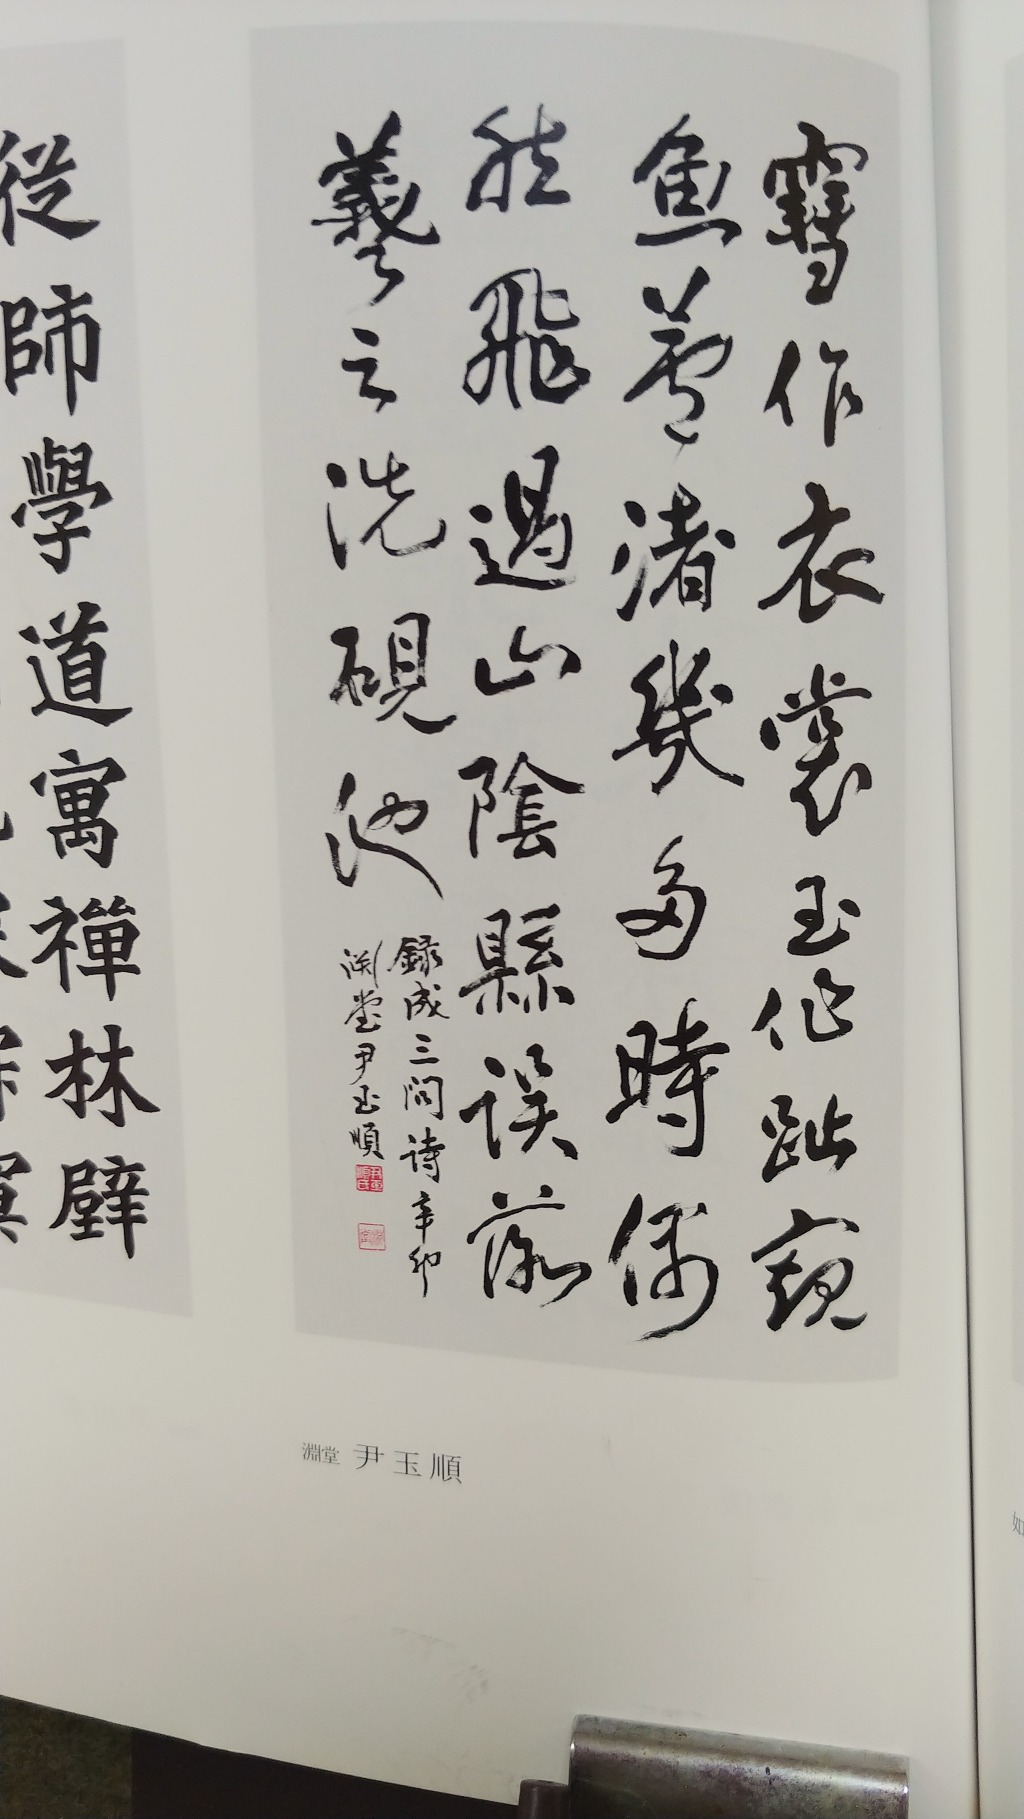 雪作衣裳玉作趾窺
魚蘆渚幾多時偶
然飛過山陰縣誤落
羲之洗硯池
錄成三問詩辛卯
淵堂尹玉順
淵堂 尹玉順
從師學道寓禪林壁
如